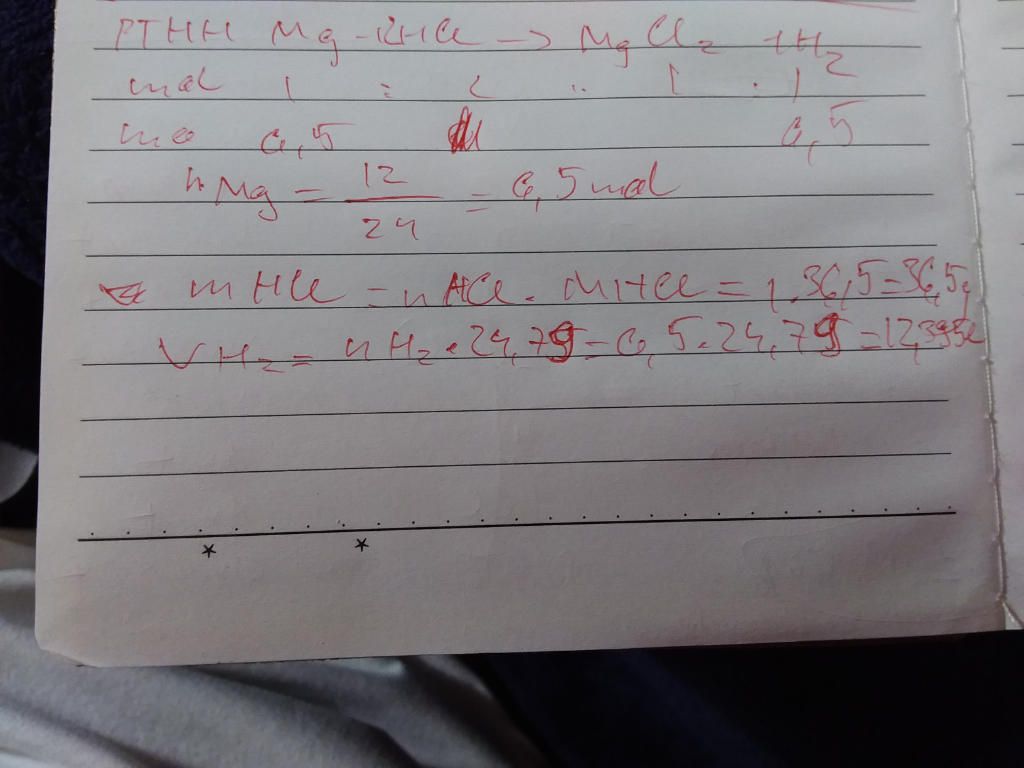 PTHH Mg + 2HCl -> MgCl2 + H2
mol 1 : 2 : 1 : 1
mol 0,5 1 0,5
nMg = 12/24 = 0,5 mol
mHCl = nHCl . MHCl = 1.36,5=36,5g
VH2 = nH2.24,79=0,5.24,79=12,395l